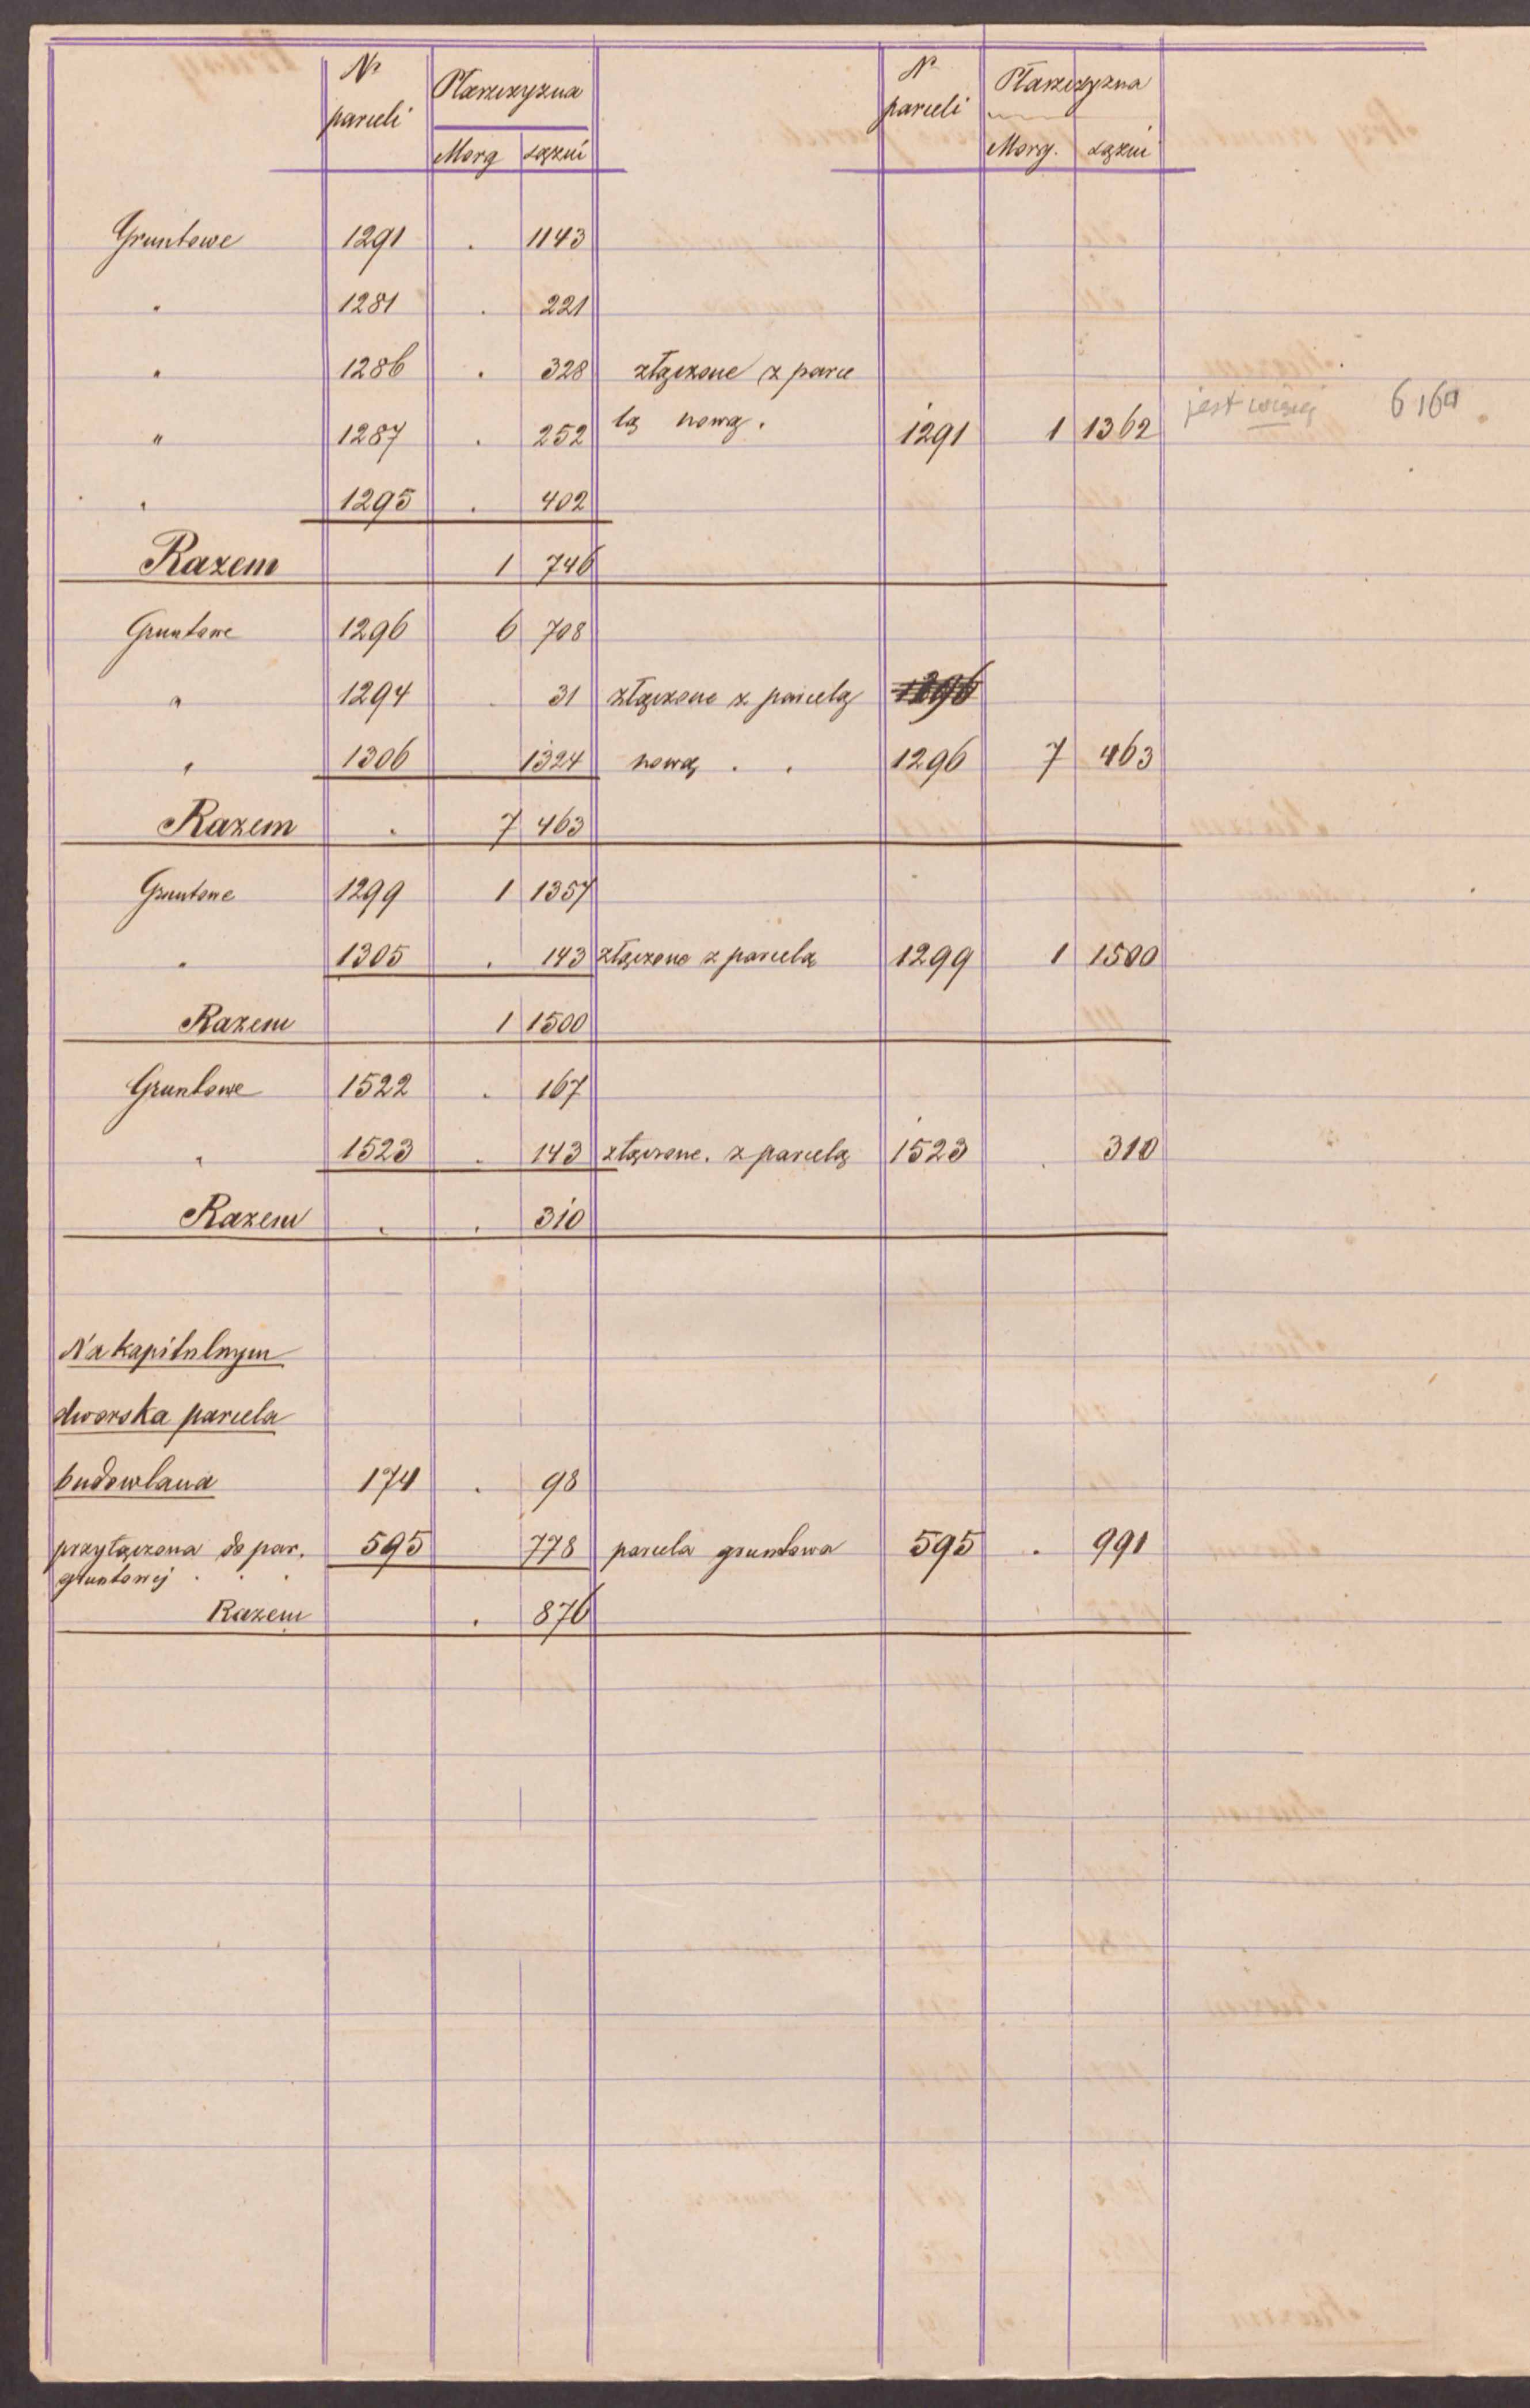 Nr parceli Płaszczyzna Nr parceli Płaszczyzna
Morg Sążni Morg. Sążni
Gruntowe 1291 . 1143
" 1281 . 221
" 1286 . 328 złączone z parce
" 1287 . 252 lą nową . 1291 1 1362 jest więcej 616
" 1295 . 402
Razem 1 746
Gruntowe 1296 6 708
" 1294 . 31 złączone z parcelą 1296
" 1306 1324 nową . . 1296 7 463
Razem . 7 463
Gruntowe 1299 1 1357
" 1305 . 143 złączone z parcelą 1299 1 1500
Razem 1 1500
Gruntowe 1522 . 167
" 1523 . 143 złączone . z parcelą 1523 . 310
Razem . . 310
Na kapitulnym
dworska parcela
budowlana 174 . 98
przyłączona do par. 595 778 parcela gruntowa 595 . 991
gruntowej . . .
Razem . 876